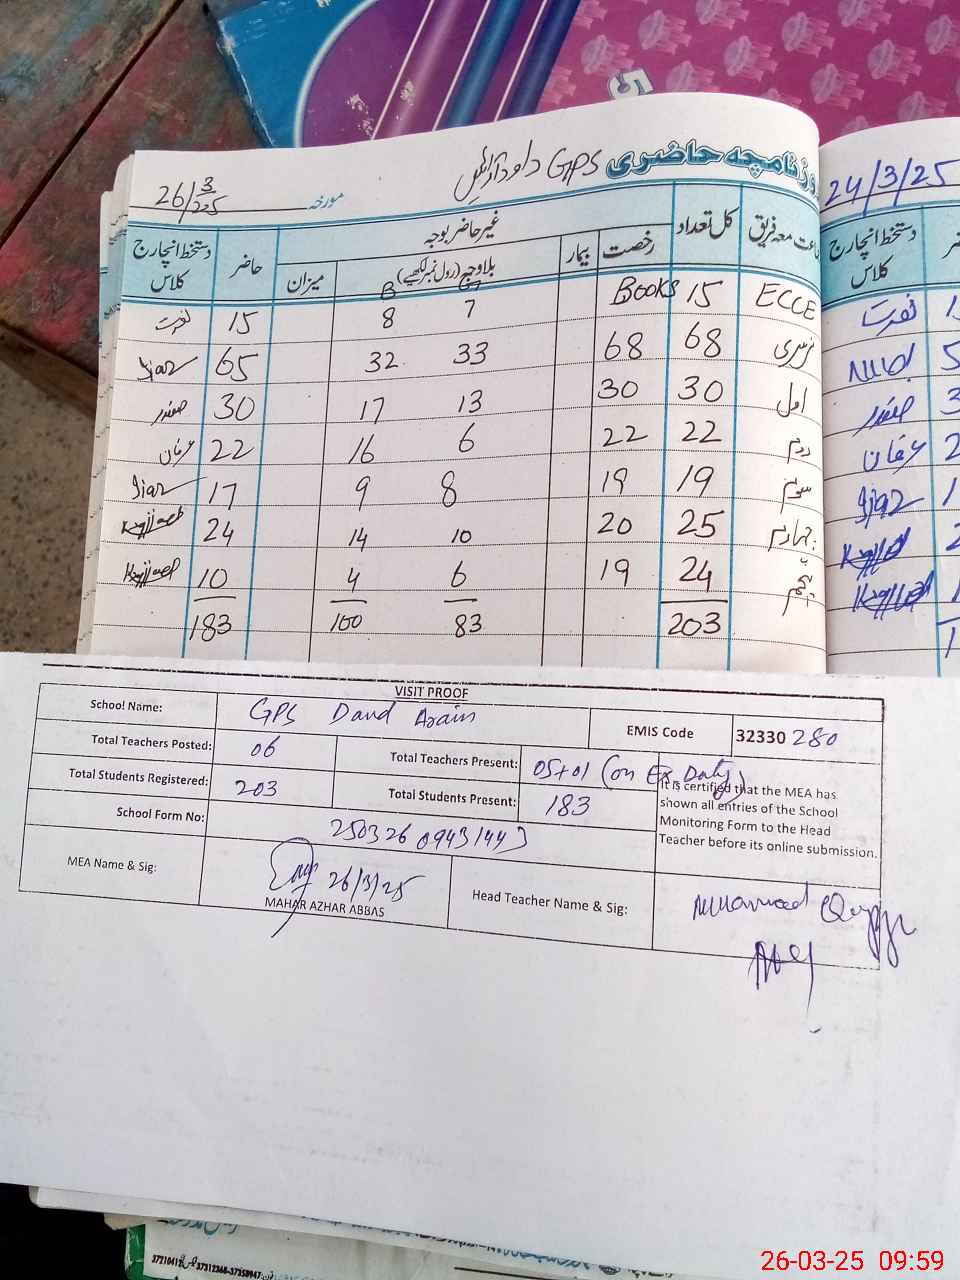 روزنامچہ حاضری GPS داود آرائیں
مورخہ 26/3/2025
جماعت معہ فریق کل تعداد غیر حاضر بوجہ حاضر دستخط انچارج کلاس
رخصت بیمار بلاوجہ (رول نمبر لکھیے) میزان
BOOKS G B
ECCE 15 7 8 15 نصرت
نرسری 68 68 33 32 65 Ijaz
اول 30 30 13 17 30 صفدر
دوم 22 22 6 16 22 عرفان
سوم 19 19 8 9 17 Ijaz
چہارم 25 20 10 14 24
پنجم 24 19 6 4 10
203 83 100 183
24/3/25
دستخط انچارج کلاس
نصرت
صفدر
عرفان
Ijaz
VISIT PROOF
School Name: GPS Daud Arain EMIS Code 32330 280
Total Teachers Posted: 06 Total Teachers Present: 05+01 (on Ex. Duty)
Total Students Registered: 203 Total Students Present: 183
School Form No: 250326 09431443
It is certified that the MEA has
shown all entries of the School
Monitoring Form to the Head
Teacher before its online submission.
MEA Name & Sig: 26/3/25
MAHAR AZHAR ABBAS
Head Teacher Name & Sig: Muhammad
26-03-25 09:59